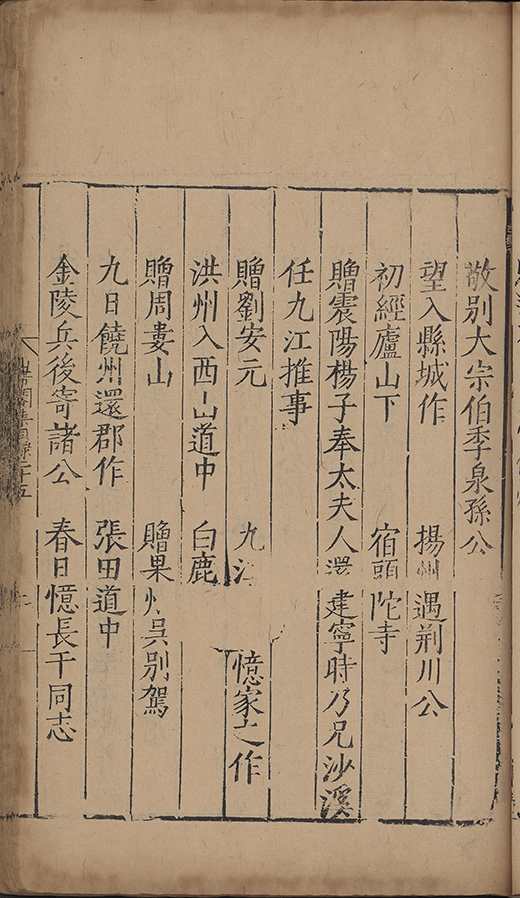 敬別大宗伯季泉孫公
望入縣城作 揚州遇荆川公
初經廬山下 宿頭陀寺
贈震陽楊子奉太夫人還建寧時乃兄沙溪
任九江推事
贈劉安元 九江 憶家之作
洪州入西山道中 白鹿
贈周婁山 贈果州吳別駕
九日饒州還郡作 張田道中
金陵兵後寄諸公 春日憶長干同志